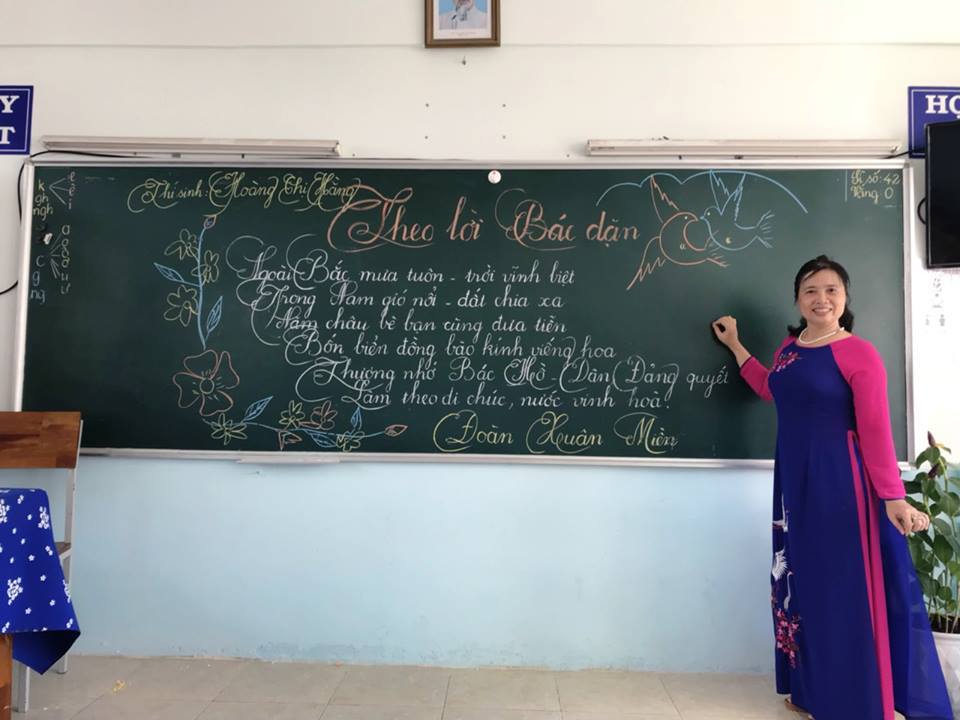 Y
T
HỌ
k
gh
ngh
e
ê
i
a
o
ô
ơ
u
ư
c
g
ng
Thí sinh: Hoàng Thị Hằng
Sĩ số: 42
Vắng 0
Theo lời Bác dặn
Ngoài Bắc mưa tuôn - trời vĩnh biệt
Trong Nam gió nổi - đất chia xa
Năm châu bè bạn cùng đưa tiễn
Bốn biển đồng bào kính viếng hoa
Thương nhớ Bác Hồ - Dân Đảng quyết
Làm theo di chúc, nước vinh hoà.
Đoàn Xuân Miền